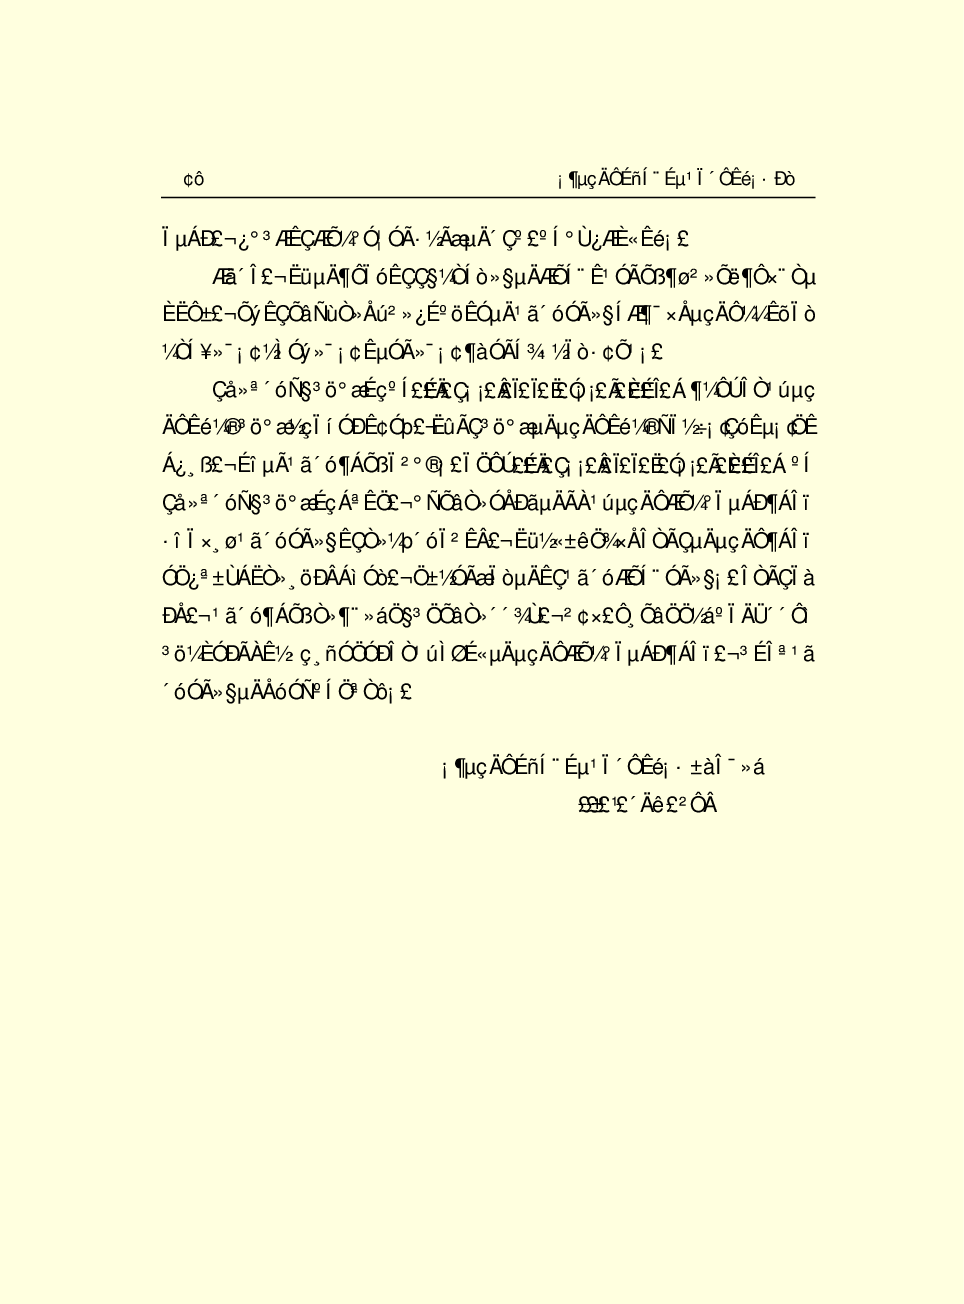 ¢ô ¡¶µçÄÔÉñÍ¨Éµ¹Ï´ÔÊé¡·Ðò
ÏµÁÐ£¬¿°³ÆÊÇÆÕ¼°Ó¦ÓÃ·½ÃæµÄ´Çº£ºÍ°Ù¿ÆÈ«Êé¡£
Æä´Î£¬ËüµÄ¶ÔÏóÊÇÇ§¼ÒÍò»§µÄÆÕÍ¨Ê¹ÓÃÕß¶ø²»Õë¶Ô×¨Òµ
ÈËÔ±£¬ÕýÊÇÕâÑùÒ»Åú²»¿ÉºöÊÓµÄ¹ã´óÓÃ»§ÍÆ¶¯×ÅµçÄÔ¼¼ÊõÏò
¼ÒÍ¥»¯¡¢½ÌÓý»¯¡¢ÊµÓÃ»¯¡¢¶àÓÃÍ¾·½Ïò·¢Õ¹¡£
Çå»ª´óÑ§³ö°æÉçºÍ£É£Ä£Ç¡¡£Â£Ï£Ï£Ë£Ó¡¡£Ã£È£É£Î£Á¶¼ÔÚÎÒ¹úµç
ÄÔÊé¼®³ö°æ½çÏíÓÐÊ¢Óþ£¬ËûÃÇ³ö°æµÄµçÄÔÊé¼®ÑÏ½÷¡¢ÇóÊµ¡¢ÖÊ
Á¿¸ß£¬ÉîµÃ¹ã´ó¶ÁÕßÏ²°®¡£ÏÖÔÚ£É£Ä£Ç¡¡£Â£Ï£Ï£Ë£Ó¡¡£Ã£È£É£Î£ÁºÍ
Çå»ª´óÑ§³ö°æÉçÁªÊÖ£¬°ÑÕâÒ»ÓÅÐãµÄÃÀ¹úµçÄÔÆÕ¼°ÏµÁÐ¶ÁÎï
·îÏ×¸ø¹ã´óÓÃ»§ÊÇÒ»¼þ´óÏ²ÊÂ£¬Ëü½«±êÖ¾×ÅÎÒÃÇµÄµçÄÔ¶ÁÎï
ÓÖ¿ª±ÙÁËÒ»¸öÐÂÁìÓò£¬Ö±½ÓÃæÏòµÄÊÇ¹ã´óÆÕÍ¨ÓÃ»§¡£ÎÒÃÇÏà
ÐÅ£¬¹ã´ó¶ÁÕßÒ»¶¨»áÖ§³ÖÕâÒ»´´¾Ù£¬²¢×£Ô¸ÕâÖÖ½áºÏÄÜ´´Ôì
³ö¼ÈÓÐÃÀÊ½·ç¸ñÓÖÓÐÎÒ¹úÌØÉ«µÄµçÄÔÆÕ¼°ÏµÁÐ¶ÁÎï£¬³ÉÎª¹ã
´óÓÃ»§µÄÅóÓÑºÍÖªÒô¡£
¡¶µçÄÔÉñÍ¨Éµ¹Ï´ÔÊé¡·±àÎ¯»á
£±£¹£¹£´Äê£²ÔÂ